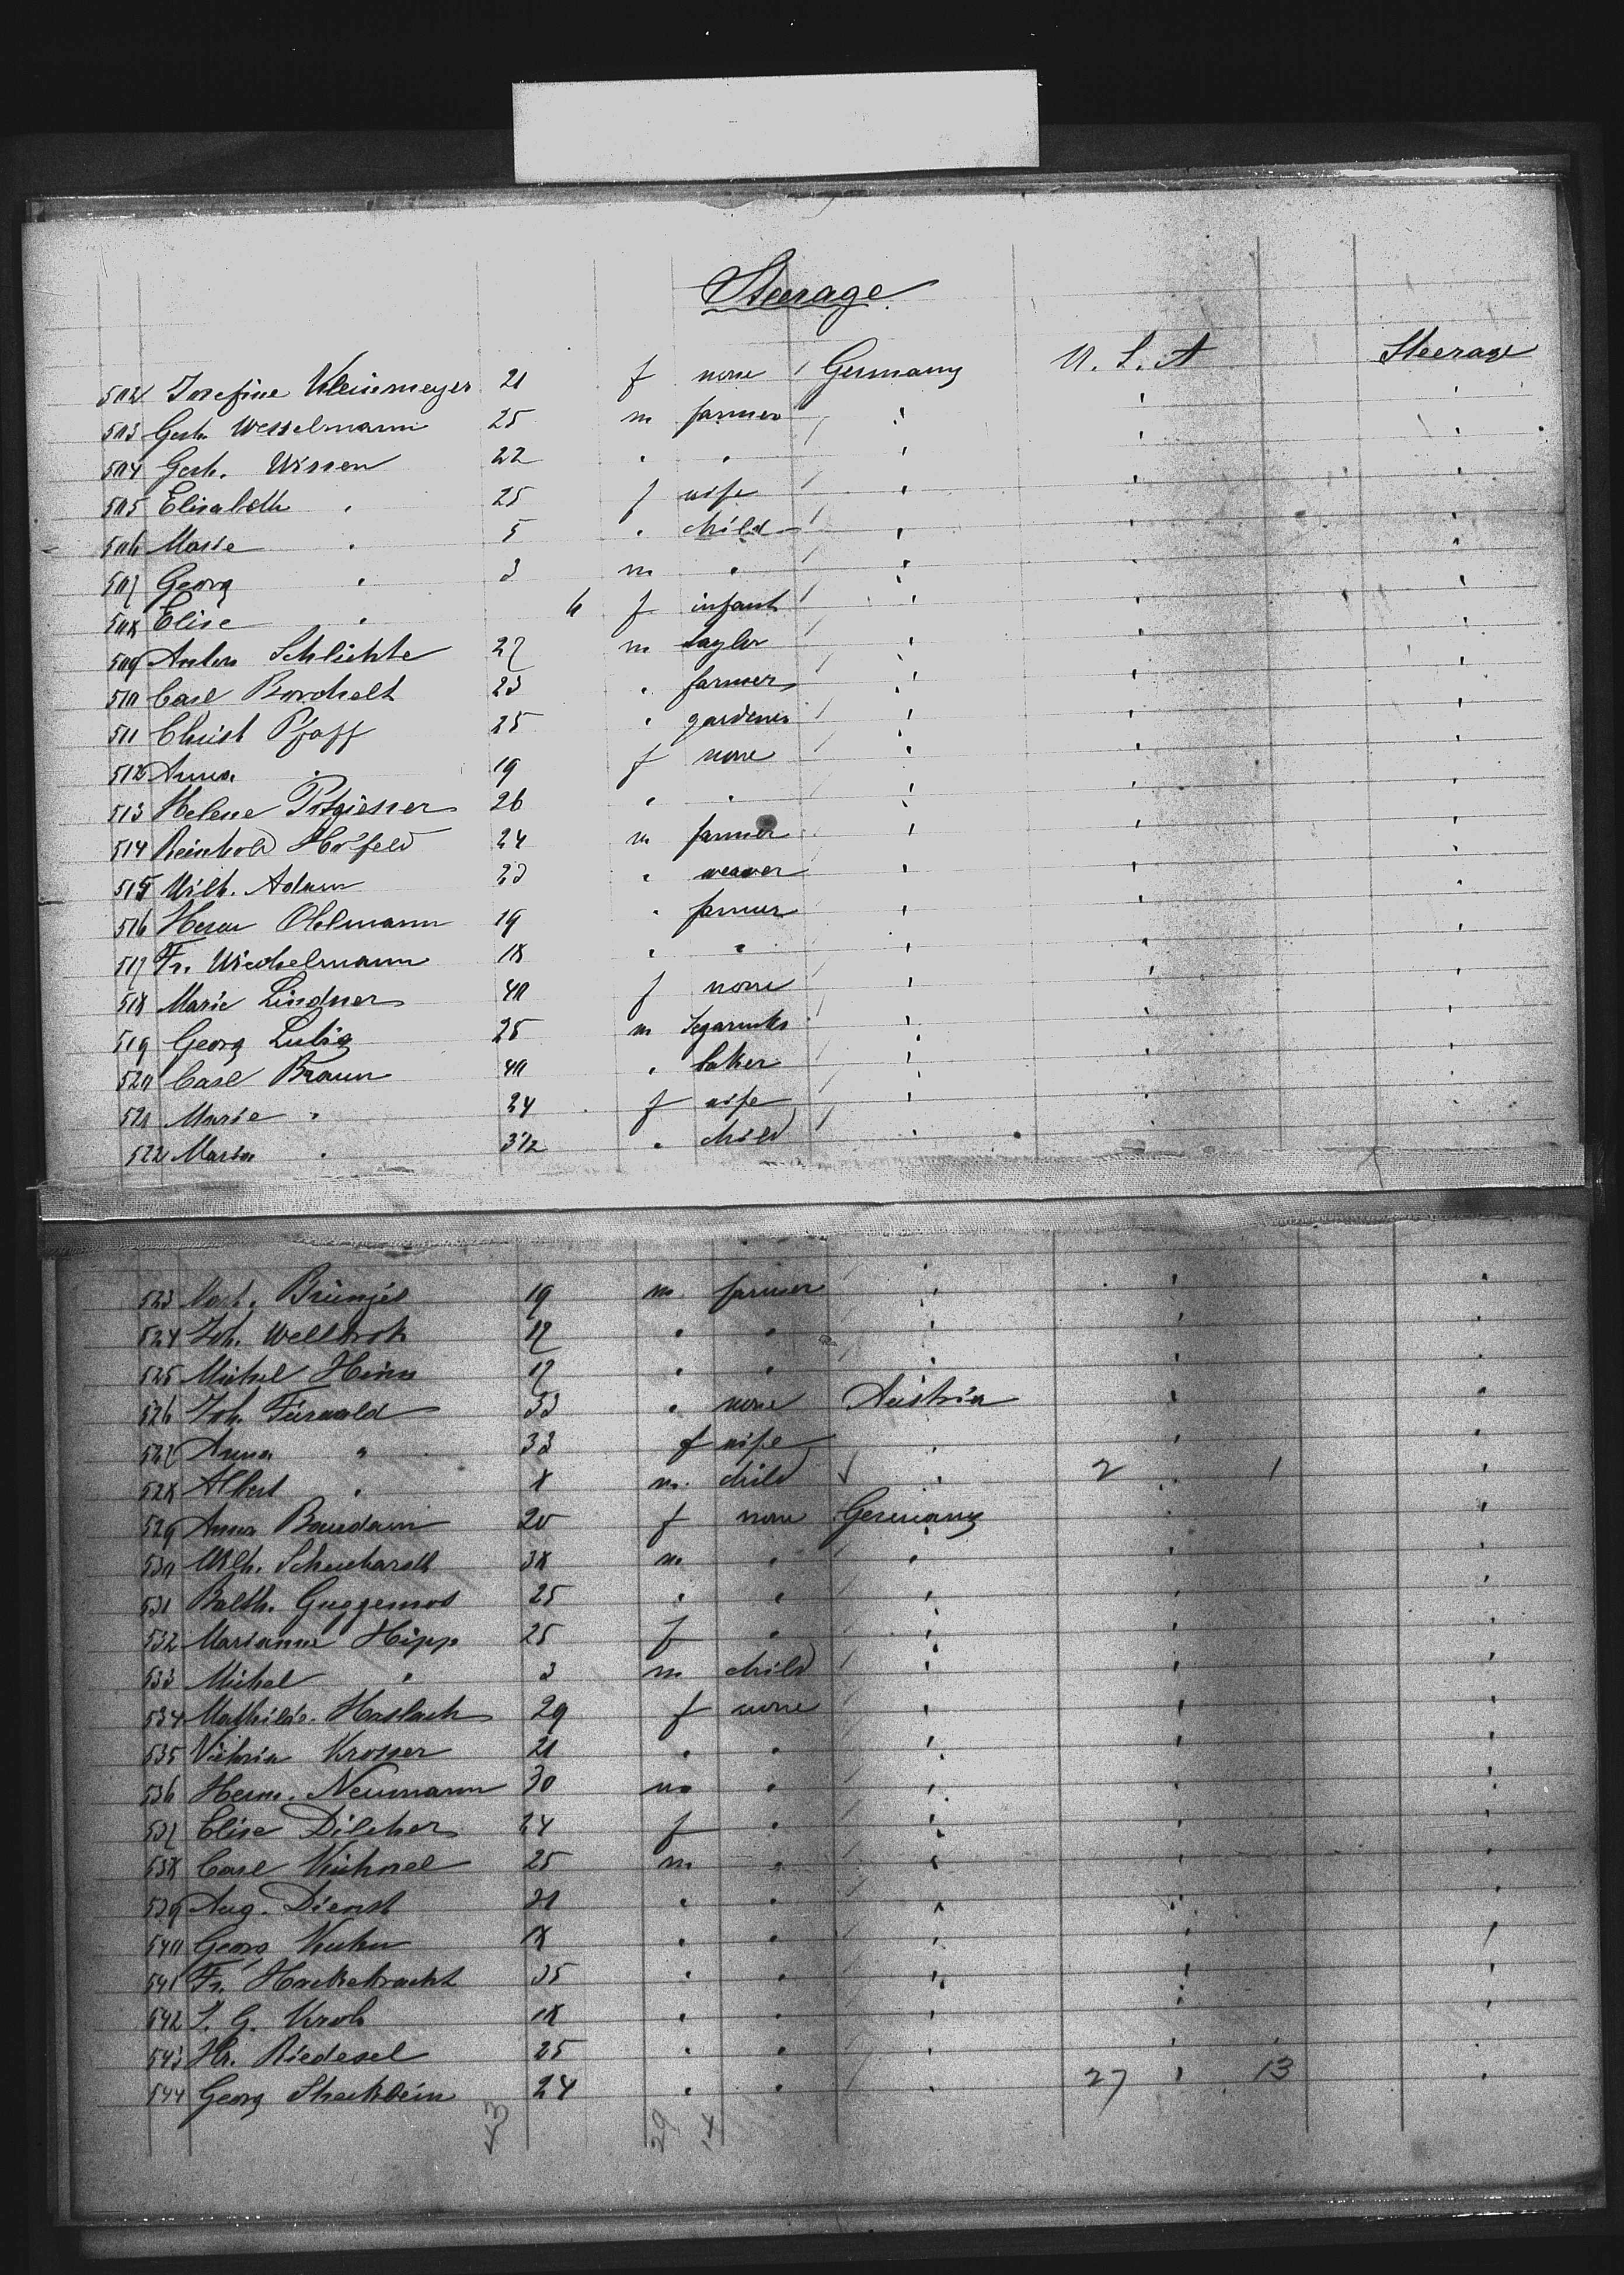 Steerage
502 Josefine Kleinemeyer 21 f none Germany U. S. A Steerage
503 Gerh. Wesselmann 25 m farmer " " "
504 Gerh. Wissen 22 " " " " "
505 Elisabeth " 25 f wife " " "
506 Marie " 5 " child " " "
507 Georg " 3 m " " " "
508 Elise " 6 f infant " " "
509 Anton Schlichte 27 m taylor " " "
510 Carl Borchelt 23 " farmer " " "
511 Christ Pfaff 25 " gardener " " "
512 Anna " 19 f none " " "
513 Helene 26 " " " " "
514 Reinhold Höfeld 24 m farmer " " "
515 Wilh. Adam 23 " weaver " " "
516 Herm Ohlmann 19 " farmer " " "
517 Fr. Wiechelmann 18 " " " " "
518 Marie Lindner 40 f none " " "
519 Georg 25 m Segarmkr " " "
520 Carl Braun 40 " baker " " "
521 Marie " 24 f wife " " "
522 Maria " 3 1/2 " child " " "
523 Mart. Brünjes 19 m farmer " " "
524 Joh. Wellbrok 17 " " " " "
525 Michel Heins 17 " " " " "
526 Joh. 33 " none Austria " "
527 Anna " 33 f wife " " "
528 Albert " 8 m child " 2 " 1 "
529 Anna 20 f none Germany " "
530 Wilh. Schuchardt 38 m " " " "
531 Balth. Guggemos 25 " " " " "
532 Marianne Hipp 25 f " " " "
533 Michel " 3 m child " " "
534 Mathilde Haslach 29 f none " " "
535 Victoria Krosser 21 " " " " "
536 Herm. Neumann 30 m " " " "
537 Elise Dilcher 24 f " " " "
538 Carl 25 m " " " "
539 Aug. Dienst 21 " " " " "
540 Georg Kuhn 18 " " " " "
541 Fr. Hackebracht 35 " " " " "
542 G. Krob 18 " " " " "
543 Hr. Riedesel 25 " " " " "
544 Georg Steckbein 24 " " " 27 " 13 "
43 29 14